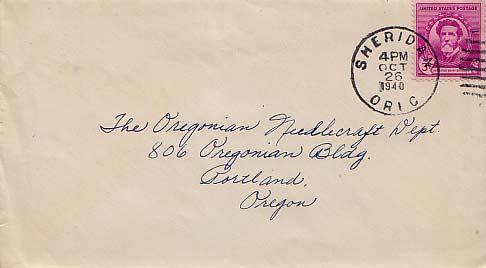 UNITED STATES POSTAGE
SHERIDAN
4PM
OCT
26
1940
OREG
3¢
The Oregonian Needlecraft Dept.
806 Oregonian Bldg.
Portland,
Oregon